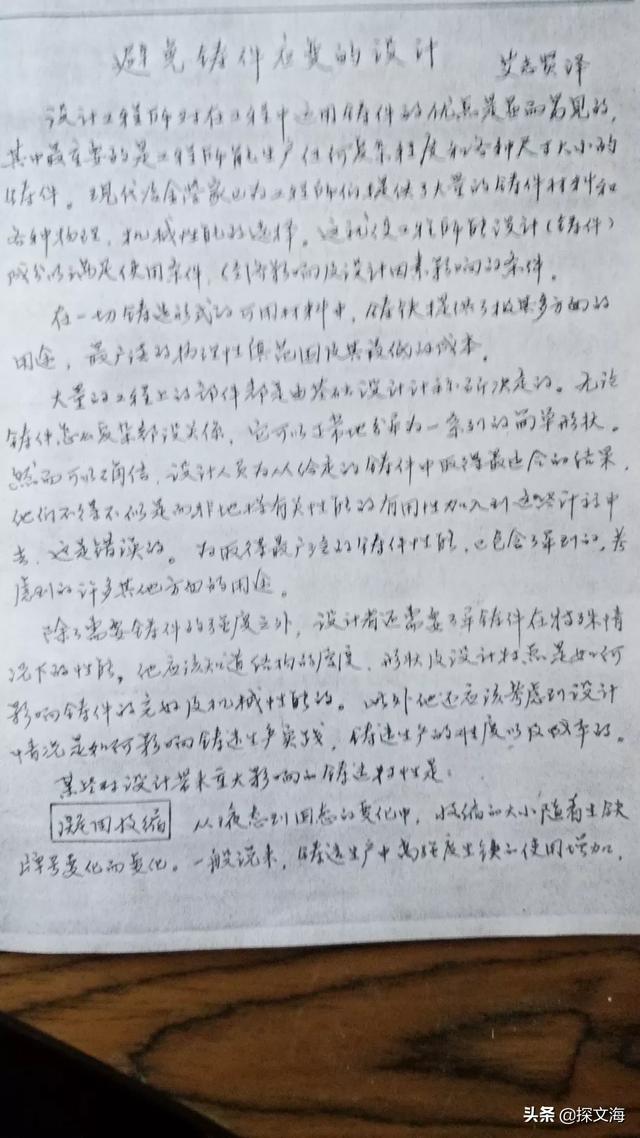 避免铸件应变的设计
艾志贤译
设计工程师对在工程中运用铸件的优点是显而易见的,
其中最主要的是工程师能生产任何复杂程度和各种尺寸大小的
铸件。现代冶金学家也为工程师们提供了大量的铸件材料和
各种物理、机械性能的选择。这就使工程师能设计(铸件)
成分以满足使用条件,经济影响及设计因素影响的条件。
在一切铸造形式的可用材料中,铸铁提供了极其多方面的
用途,最广泛的物理性质范围及其较低的成本。
大量的工程上的部件都是由基础设计计算所决定的。无论
铸件怎么复杂都没关系,它可以正常地分解为一系列的简单形状。
然而可以确信,设计人员为从给定的铸件中取得最适合的结果,
他们不得不似是而非地将有关性能的有用性加入到这些计算中
去,这是错误的。为取得最广泛的铸件性能,也包含了算到的,考
虑到的许多其他方面的用途。
除了需要铸件的强度之外,设计者还需要了解铸件在特殊情
况下的性能,他应该知道结构的密度、形状及设计特点是如何
影响铸件的完好及机械性能的。此外他还应该考虑到设计
情况是如何影响铸造生产实践,铸造生产的 性度以及成本的。
某些对设计带来重大影响的铸造特性是:
凝固收缩 从液态到固态的变化中,收缩的大小随着生铁
牌号变化而变化。一般说来,铸造生产中高强度生铁的使用增加,
头条 @探文海